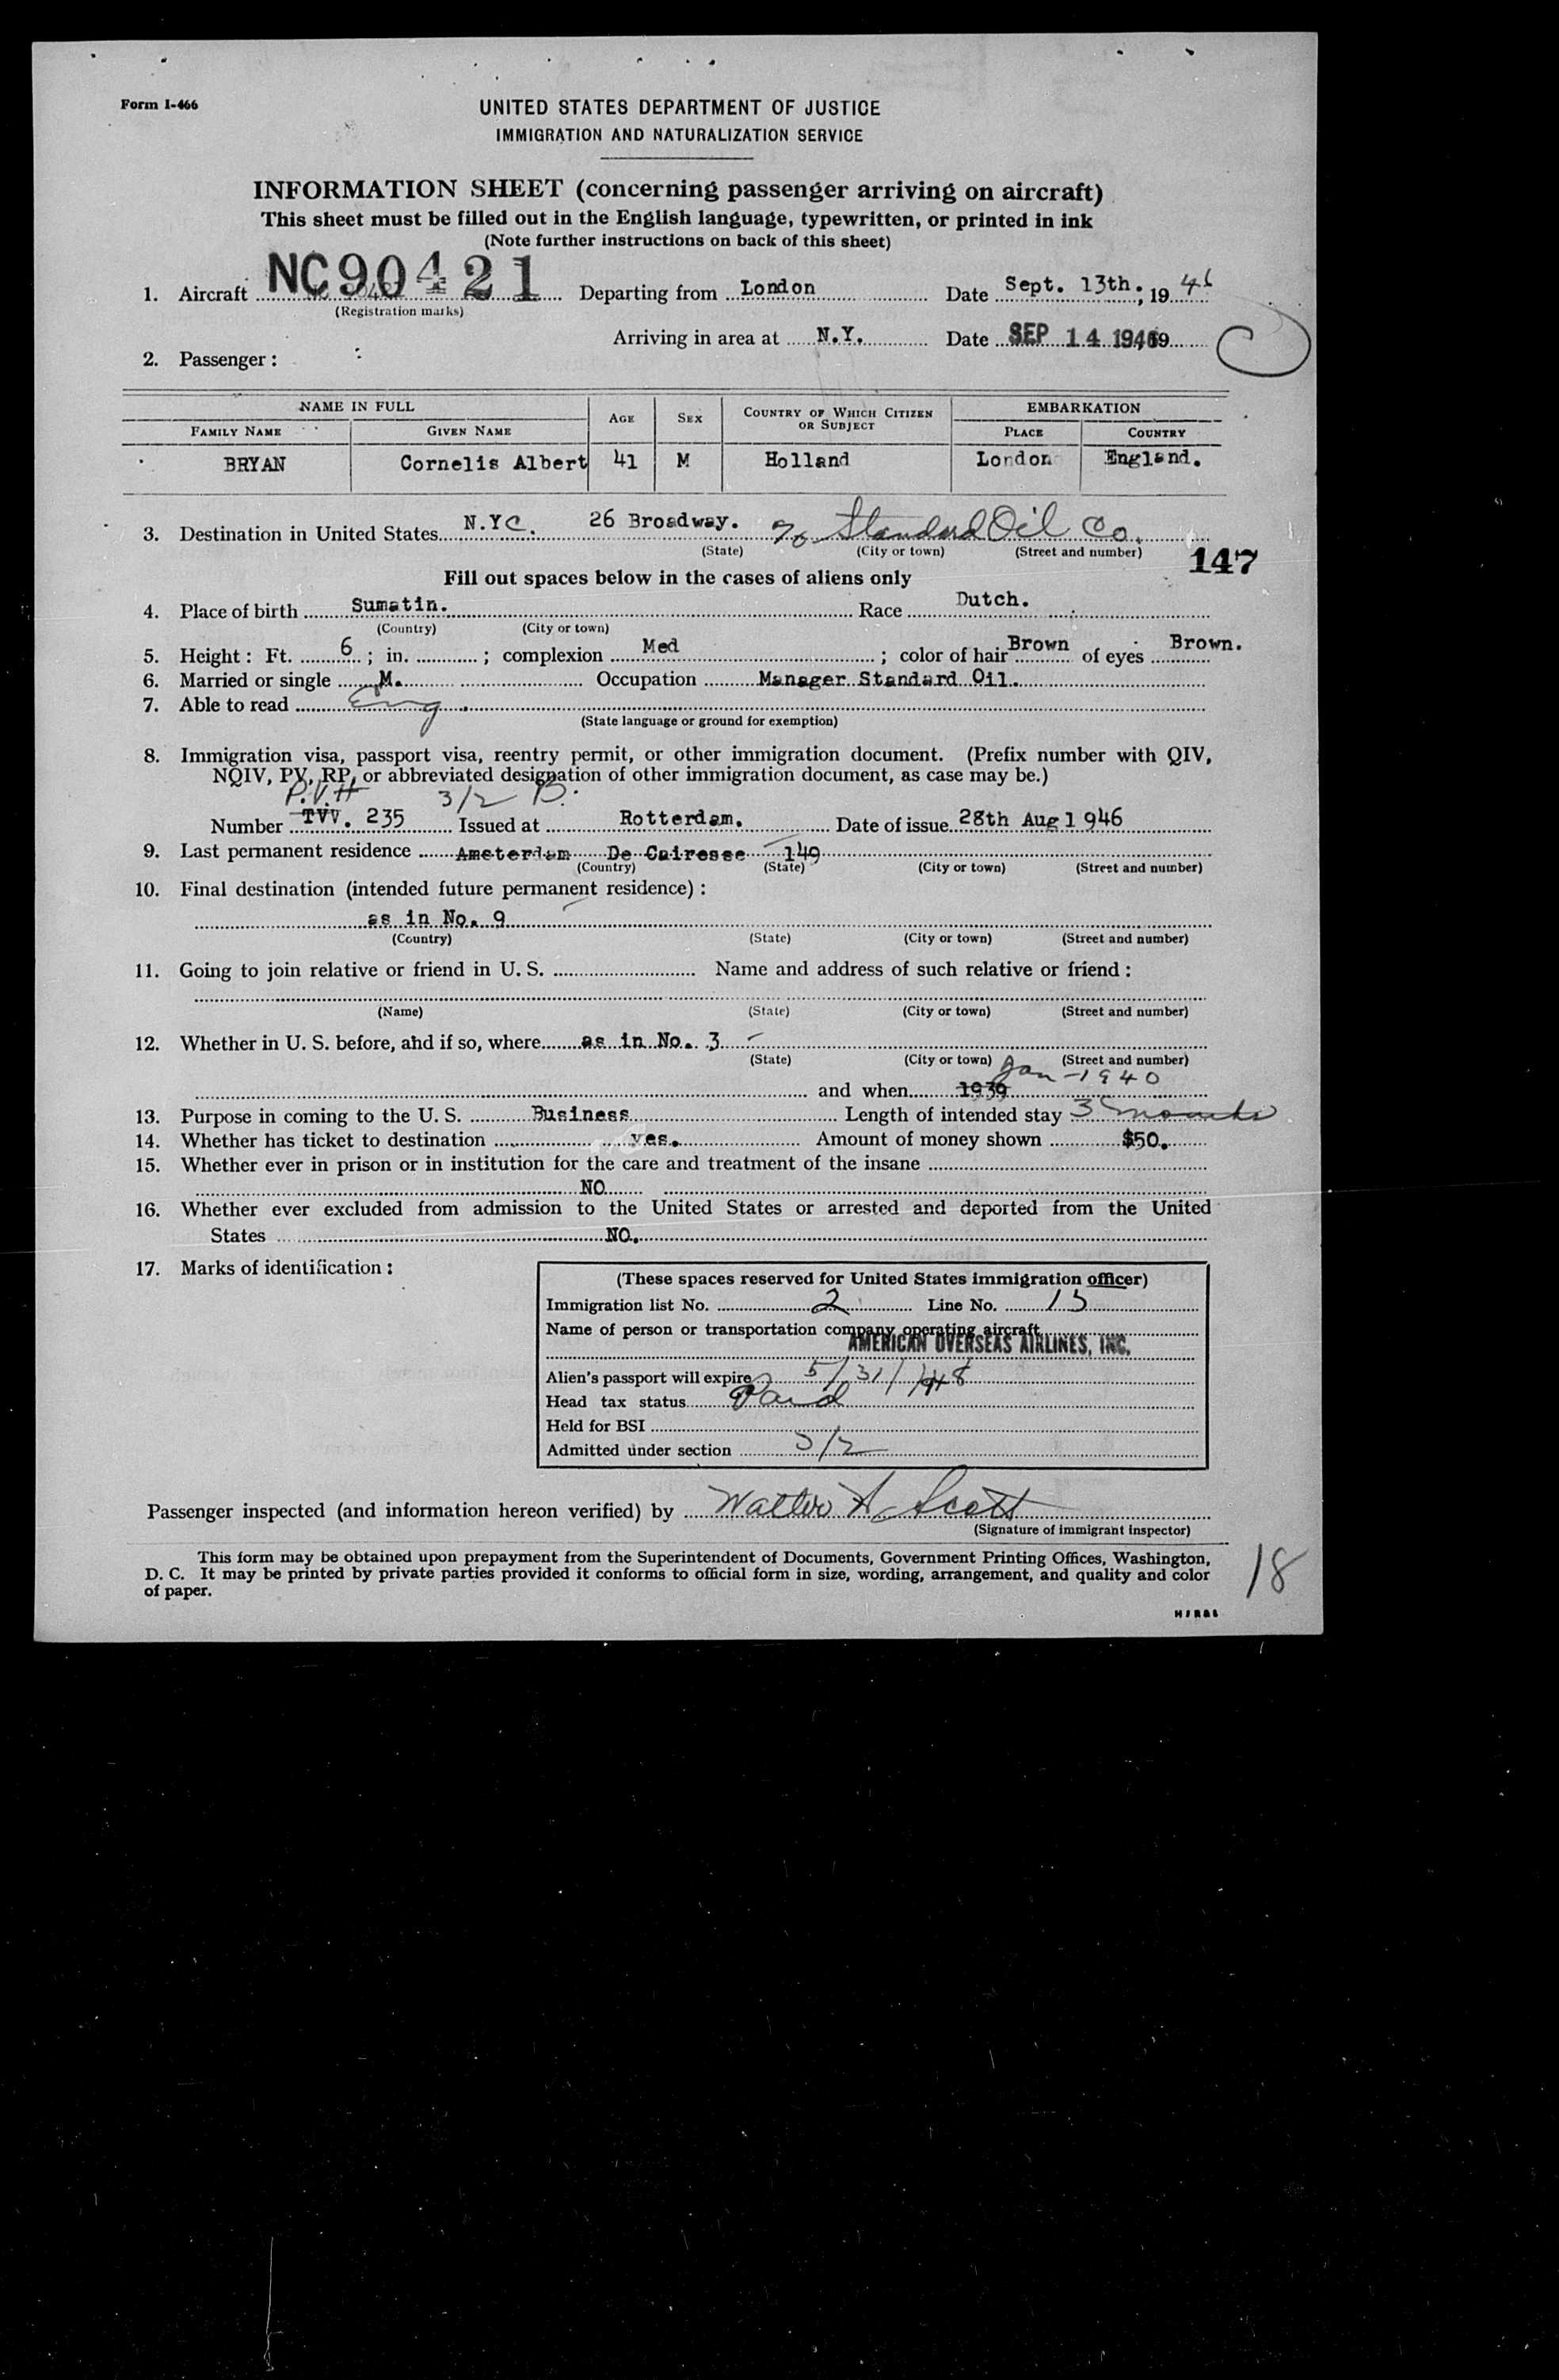 Form I-466
UNITED STATES DEPARTMENT OF JUSTICE
IMMIGRATION AND NATURALIZATION SERVICE
INFORMATION SHEET (concerning passenger arriving on aircraft)
This sheet must be filled out in the English language, typewritten, or printed in ink
(Note further instructions on back of this sheet)
1. Aircraft NC90421 Departing from London Date Sept. 13th., 1946
(Registration marks)
Arriving in area at N.Y. Date SEP 14 1946 19
2. Passenger :
NAME IN FULL AGE SEX COUNTRY OF WHICH CITIZEN OR SUBJECT EMBARKATION
FAMILY NAME GIVEN NAME PLACE COUNTRY
BRYAN Cornelis Albert 41 M Holland London England.
3. Destination in United States N.Y.C. 26 Broadway. % Standard Oil Co.
(State) (City or town) (Street and number)
147
Fill out spaces below in the cases of aliens only
4. Place of birth Sumatin. Race Dutch.
(Country) (City or town)
5. Height : Ft. 6 ; in. ; complexion Med ; color of hair Brown of eyes Brown.
6. Married or single M. Occupation Manager Standard Oil.
7. Able to read Eng.
(State language or ground for exemption)
8. Immigration visa, passport visa, reentry permit, or other immigration document. (Prefix number with QIV,
NQIV, PV, RP, or abbreviated designation of other immigration document, as case may be.)
P.V.# 3/2 B.
Number TVV. 235 Issued at Rotterdam. Date of issue 28th Aug 1946
9. Last permanent residence Amsterdam De Cairesse 149
(Country) (State) (City or town) (Street and number)
10. Final destination (intended future permanent residence) :
as in No. 9
(Country) (State) (City or town) (Street and number)
11. Going to join relative or friend in U. S. Name and address of such relative or friend :
(Name) (State) (City or town) (Street and number)
12. Whether in U. S. before, and if so, where as in No. 3
(State) (City or town) (Street and number)
Jan - 1940
and when 1939
13. Purpose in coming to the U. S. Business Length of intended stay 3 months
14. Whether has ticket to destination yes. Amount of money shown $50.
15. Whether ever in prison or in institution for the care and treatment of the insane
NO
16. Whether ever excluded from admission to the United States or arrested and deported from the United
States NO.
17. Marks of identification :
(These spaces reserved for United States immigration officer)
Immigration list No. 2 Line No. 13
Name of person or transportation company operating aircraft
AMERICAN OVERSEAS AIRLINES, INC.
Alien's passport will expire 5/31/48
Head tax status Paid
Held for BSI
Admitted under section 3/2
Passenger inspected (and information hereon verified) by Walter A. Scott
(Signature of immigrant inspector)
This form may be obtained upon prepayment from the Superintendent of Documents, Government Printing Offices, Washington,
D. C. It may be printed by private parties provided it conforms to official form in size, wording, arrangement, and quality and color
of paper.
18